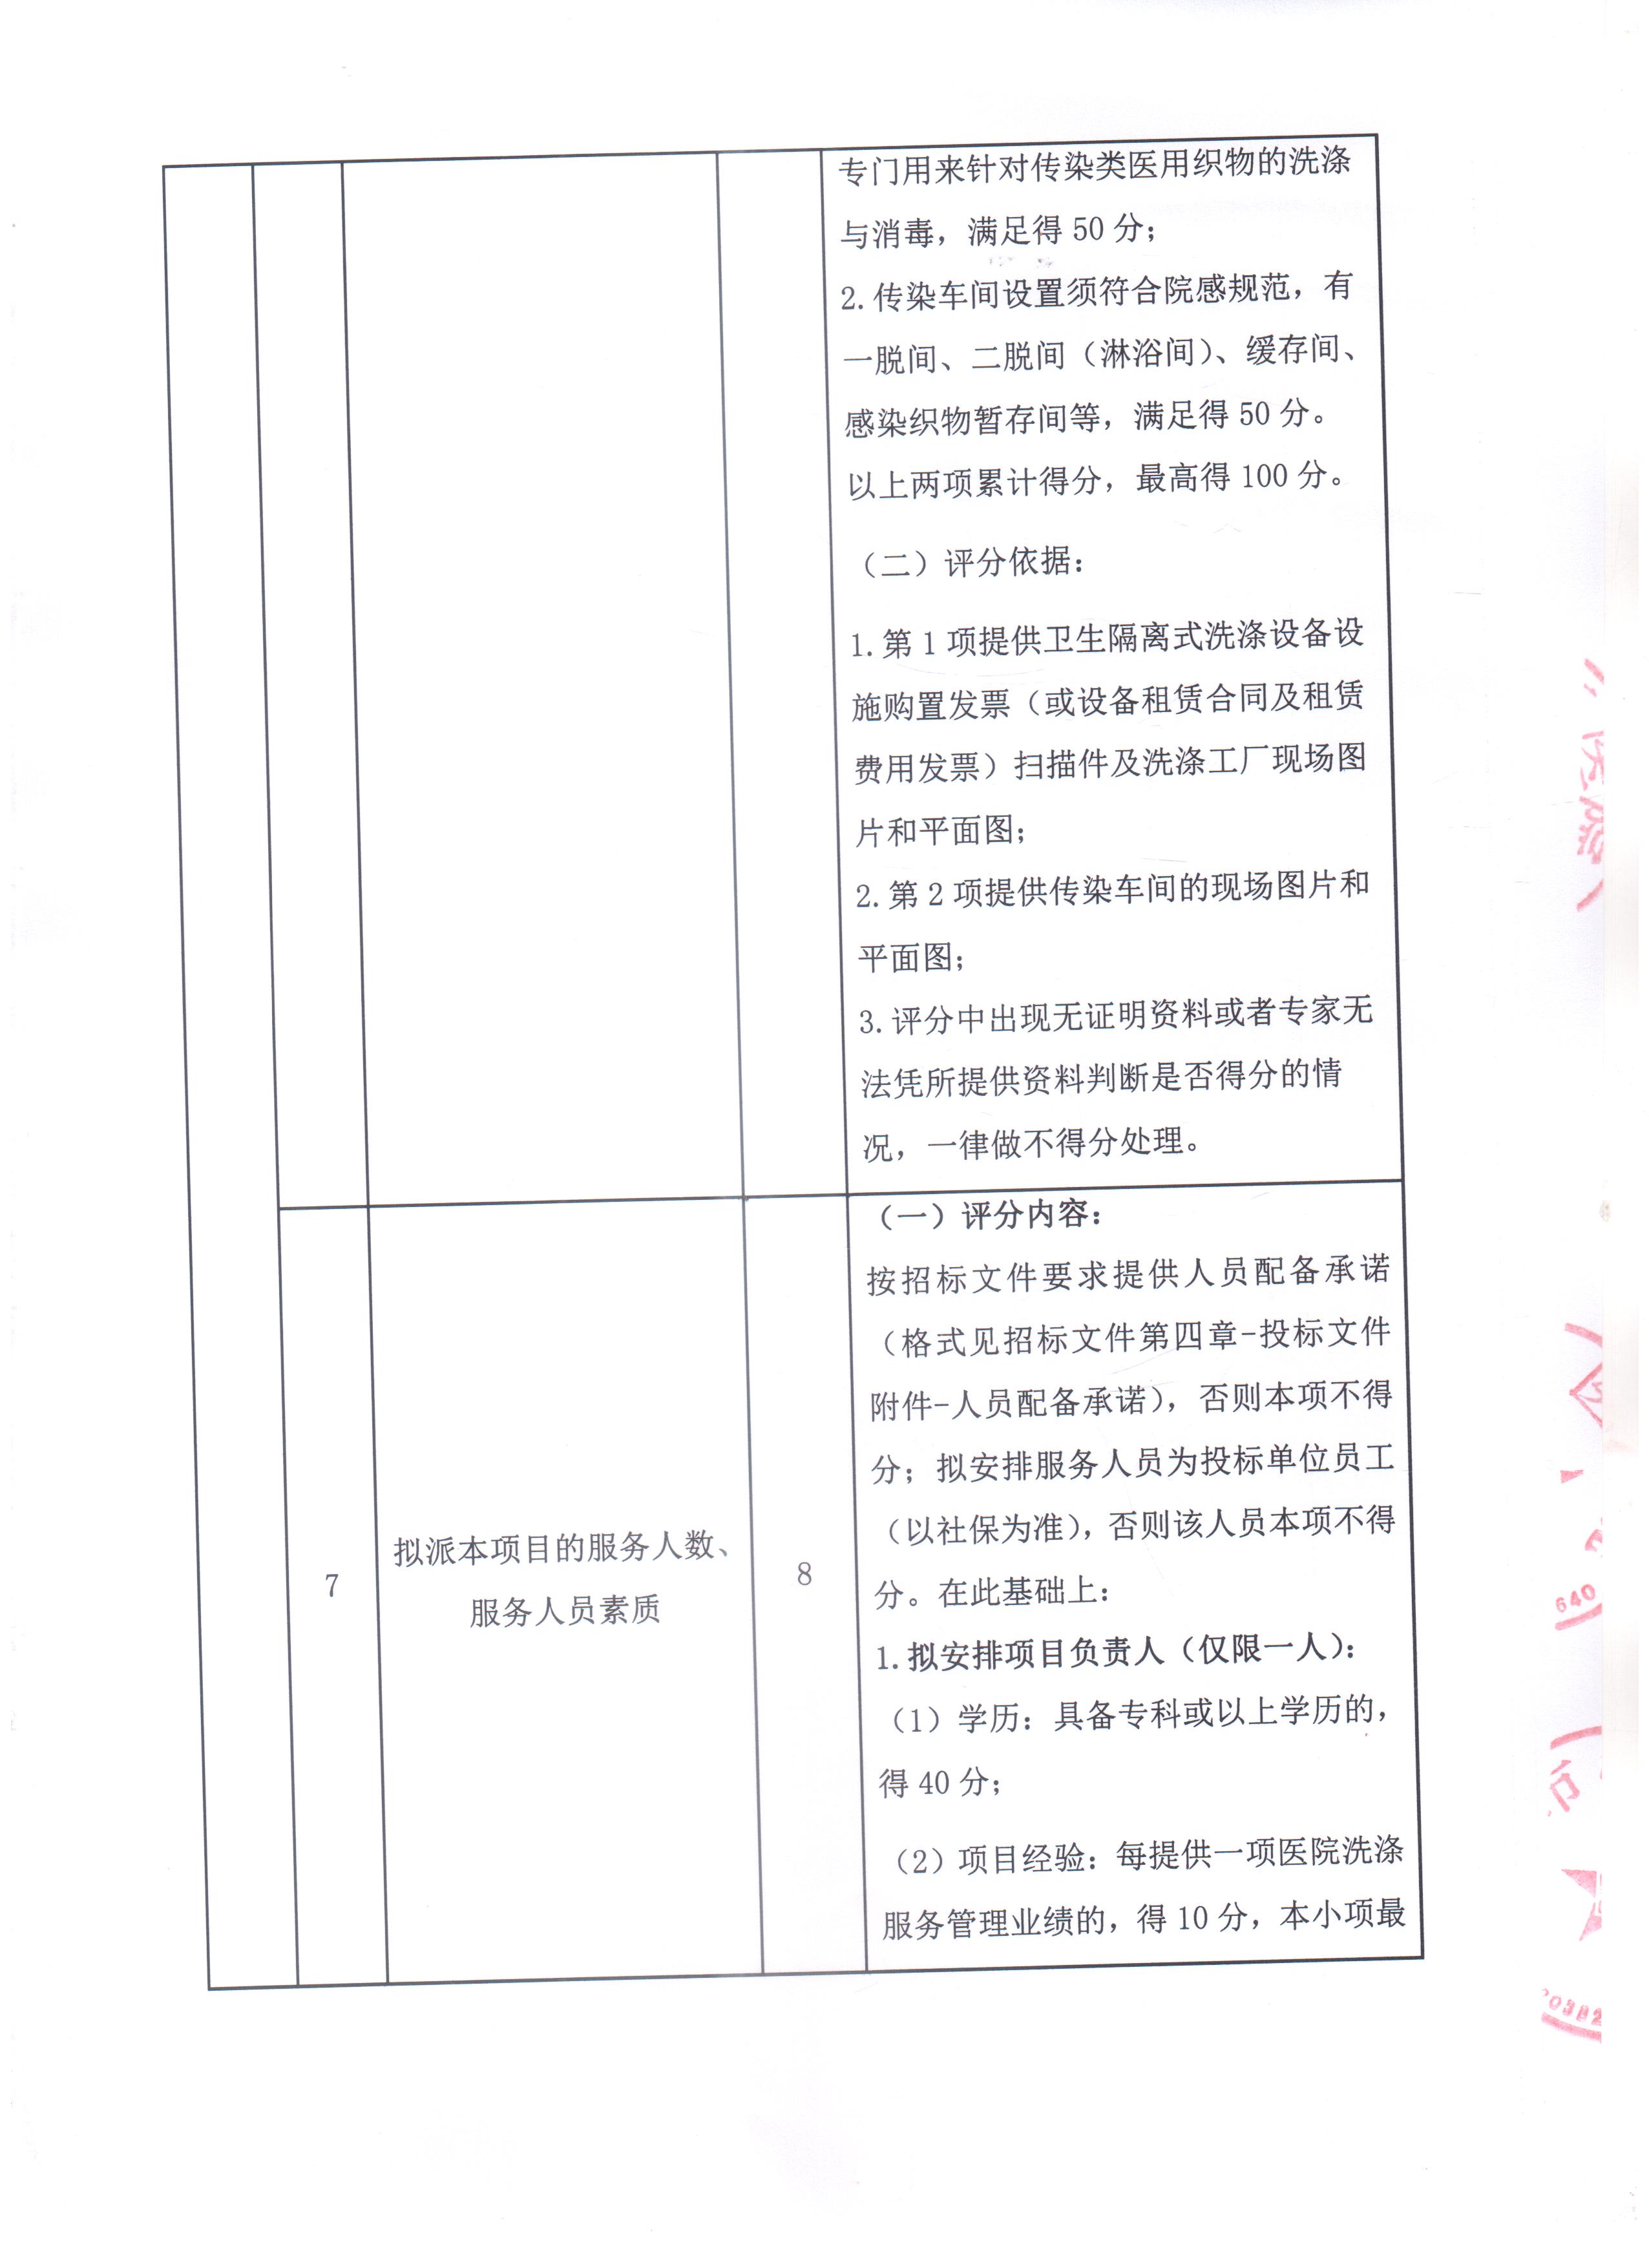 专门用来针对传染类医用织物的洗涤
与消毒，满足得 50 分；
2.传染车间设置须符合院感规范，有
一脱间、二脱间（淋浴间）、缓存间、
感染织物暂存间等，满足得 50 分。
以上两项累计得分，最高得 100 分。
（二）评分依据：
1.第 1 项提供卫生隔离式洗涤设备设
施购置发票（或设备租赁合同及租赁
费用发票）扫描件及洗涤工厂现场图
片和平面图；
2.第 2 项提供传染车间的现场图片和
平面图；
3.评分中出现无证明资料或者专家无
法凭所提供资料判断是否得分的情
况，一律做不得分处理。
7
拟派本项目的服务人数、
服务人员素质
8
（一）评分内容：
按招标文件要求提供人员配备承诺
（格式见招标文件第四章-投标文件
附件-人员配备承诺），否则本项不得
分；拟安排服务人员为投标单位员工
（以社保为准），否则该人员本项不得
分。在此基础上：
1.拟安排项目负责人（仅限一人）：
（1）学历：具备专科或以上学历的，
得 40 分；
（2）项目经验：每提供一项医院洗涤
服务管理业绩的，得 10 分，本小项最
640
0382